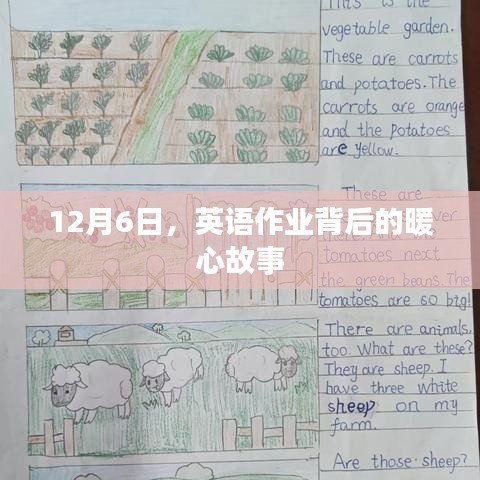 This is the
vegetable garden.
These are carrots
and potatoes. The
carrots are orange
and the potatoes
are yellow.
These are
12月6日，英语作业背后的暖
心故事
tomatoes next
the green beans. The
tomatoes are so big!
There are animals,
too. What are these?
They are sheep. I
have three white
sheep on my
farm.
Are those sheep?